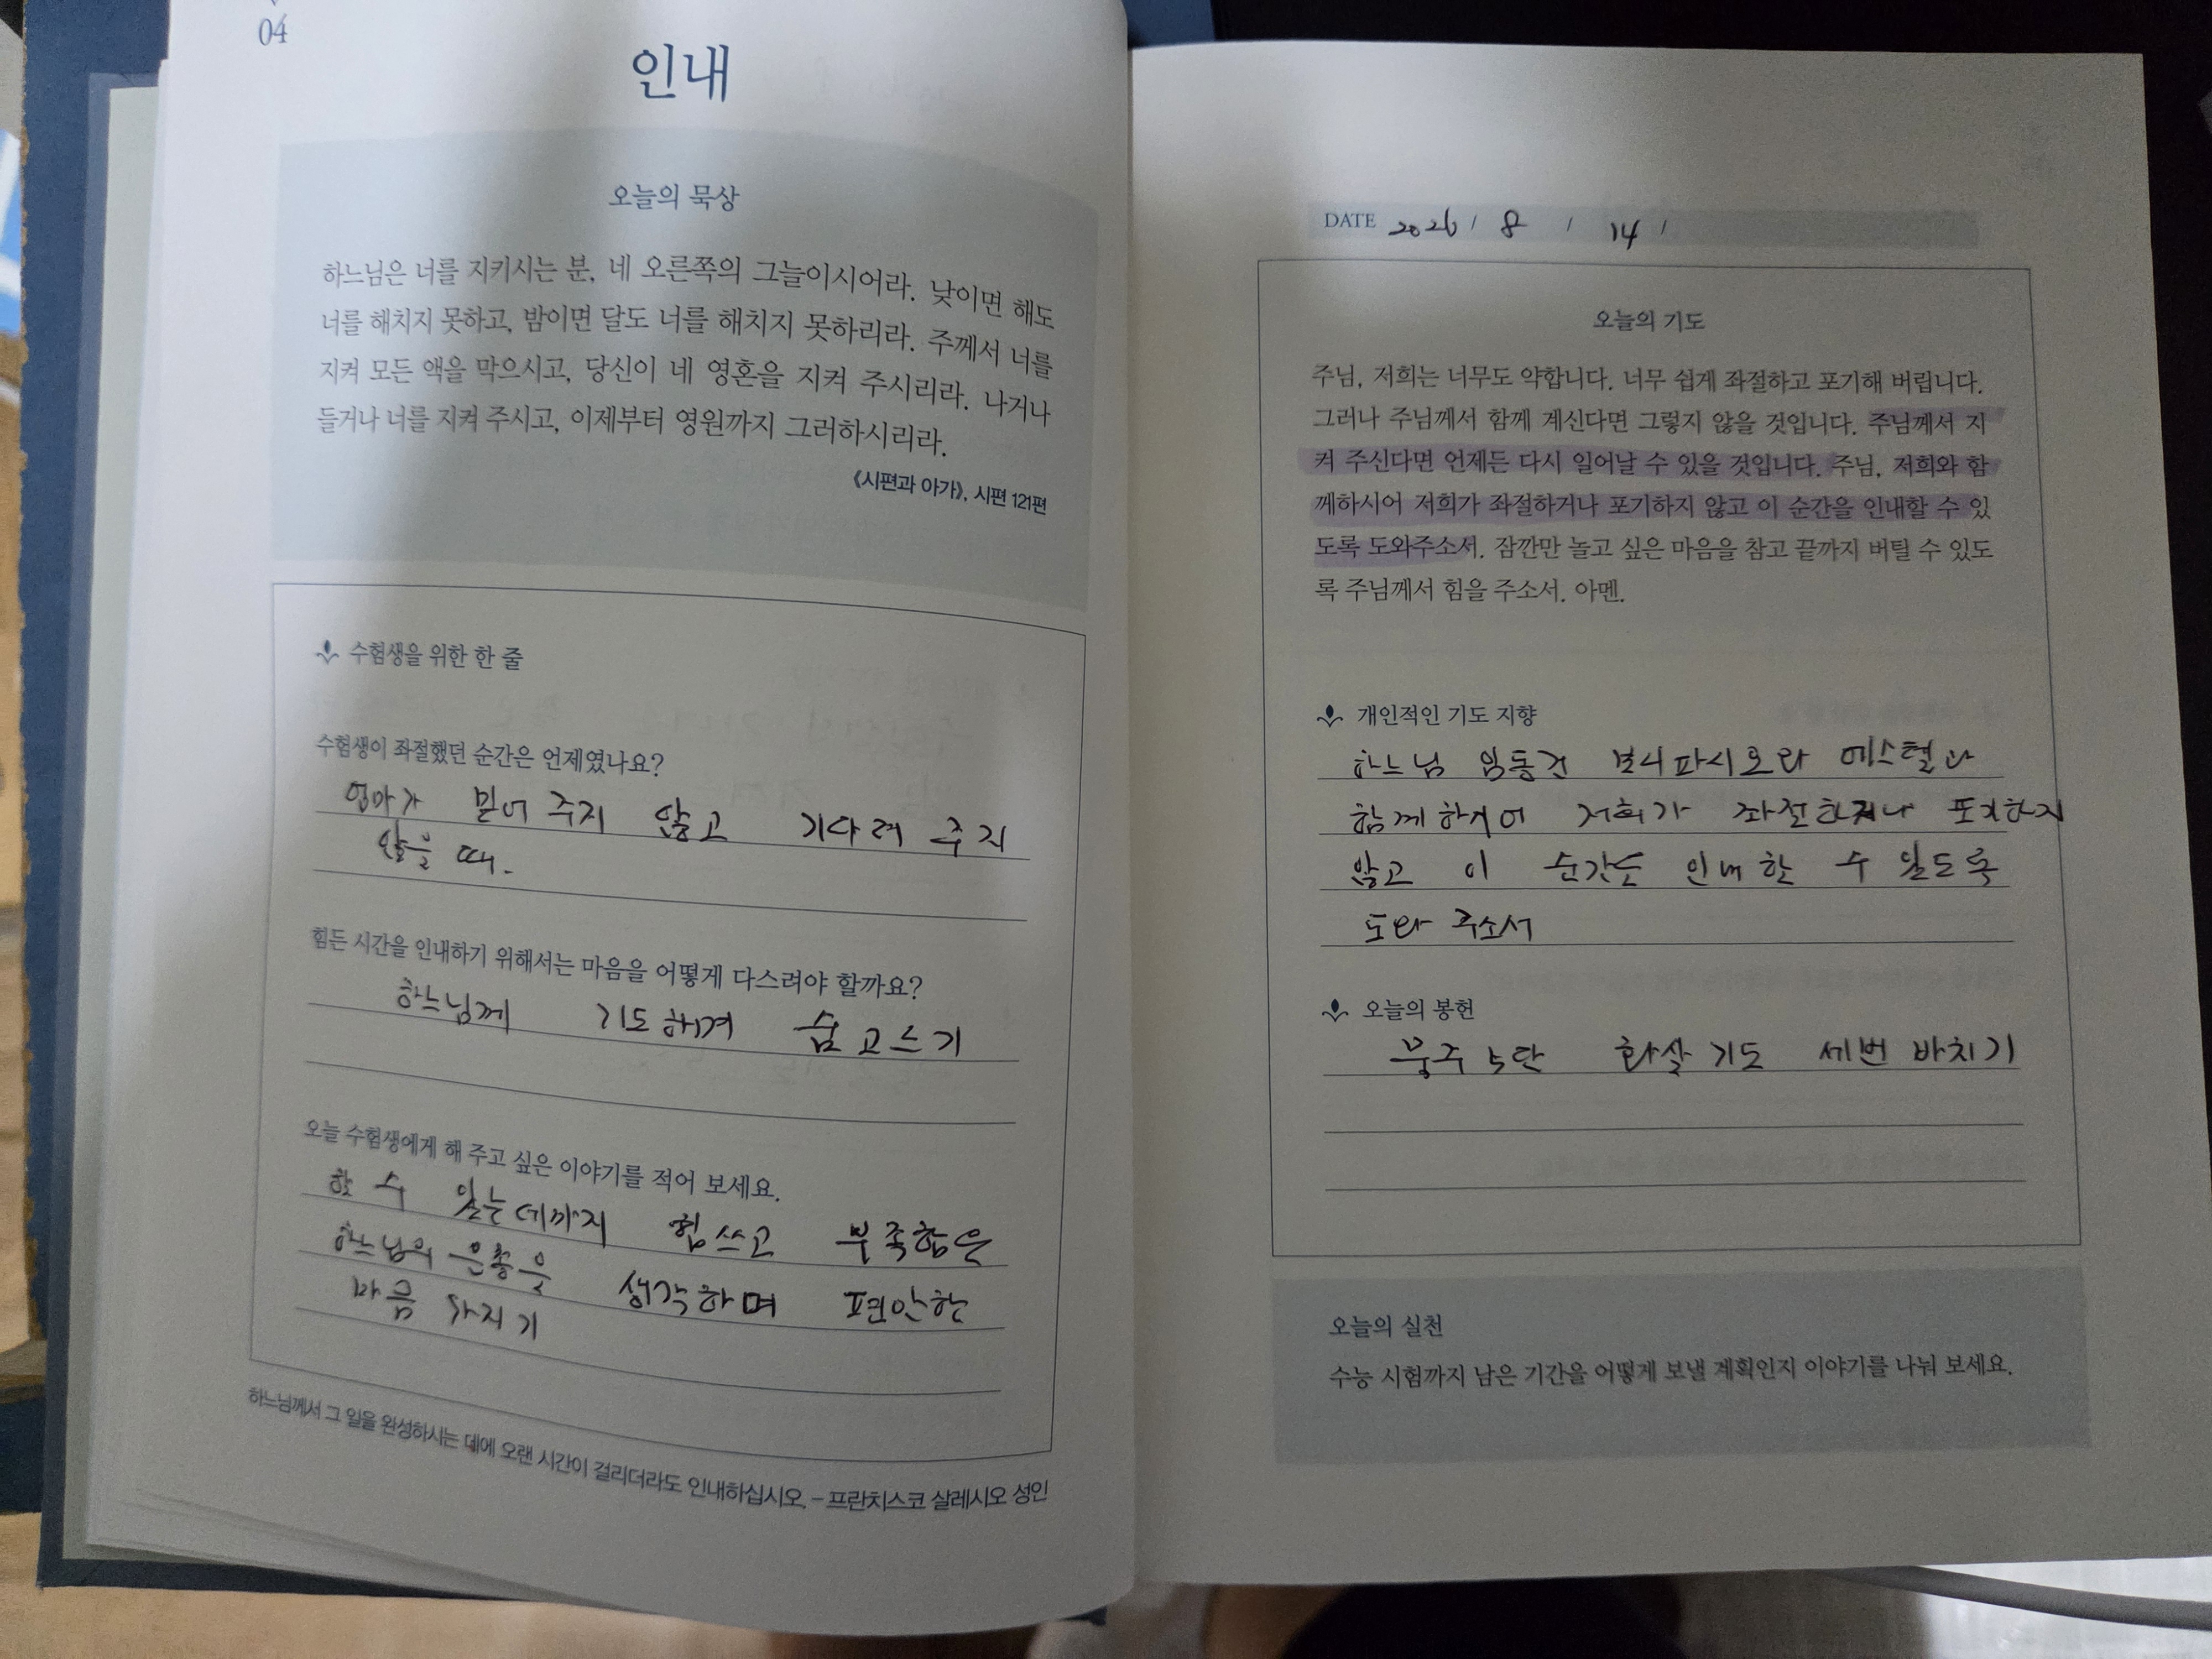 04
인내
오늘의 묵상
하느님은 너를 지키시는 분, 네 오른쪽의 그늘이시어라. 낮이면 해도
너를 해치지 못하고, 밤이면 달도 너를 해치지 못하리라. 주께서 너를
지켜 모든 액을 막으시고, 당신이 네 영혼을 지켜 주시리라. 나거나
들거나 너를 지켜 주시고, 이제부터 영원까지 그러하시리라.
《시편과 아가》, 시편 121편
수험생을 위한 한 줄
수험생이 좌절했던 순간은 언제였나요?
엄마가 믿어 주지 않고 기다려 주지
않을 때.
힘든 시간을 인내하기 위해서는 마음을 어떻게 다스려야 할까요?
하느님께 기도하며 숨 고르기
오늘 수험생에게 해 주고 싶은 이야기를 적어 보세요.
할 수 있는데까지 힘쓰고 부족함은
하느님의 은총을 생각하며 편안한
마음 가지기
하느님께서 그 일을 완성하시는 데에 오랜 시간이 걸리더라도 인내하십시오. – 프란치스코 살레시오 성인
DATE 2026 / 8 / 14 /
오늘의 기도
주님, 저희는 너무도 약합니다. 너무 쉽게 좌절하고 포기해 버립니다.
그러나 주님께서 함께 계신다면 그렇지 않을 것입니다. 주님께서 지
켜 주신다면 언제든 다시 일어날 수 있을 것입니다. 주님, 저희와 함
께하시어 저희가 좌절하거나 포기하지 않고 이 순간을 인내할 수 있
도록 도와주소서. 잠깐만 놀고 싶은 마음을 참고 끝까지 버틸 수 있도
록 주님께서 힘을 주소서. 아멘.
개인적인 기도 지향
하느님 임동건 보니파시오와 에스텔과
함께하시어 저희가 좌절하거나 포기하지
않고 이 순간을 인내할 수 있도록
도와 주소서
오늘의 봉헌
묵주 5단 화살기도 세번 바치기
오늘의 실천
수능 시험까지 남은 기간을 어떻게 보낼 계획인지 이야기를 나눠 보세요.